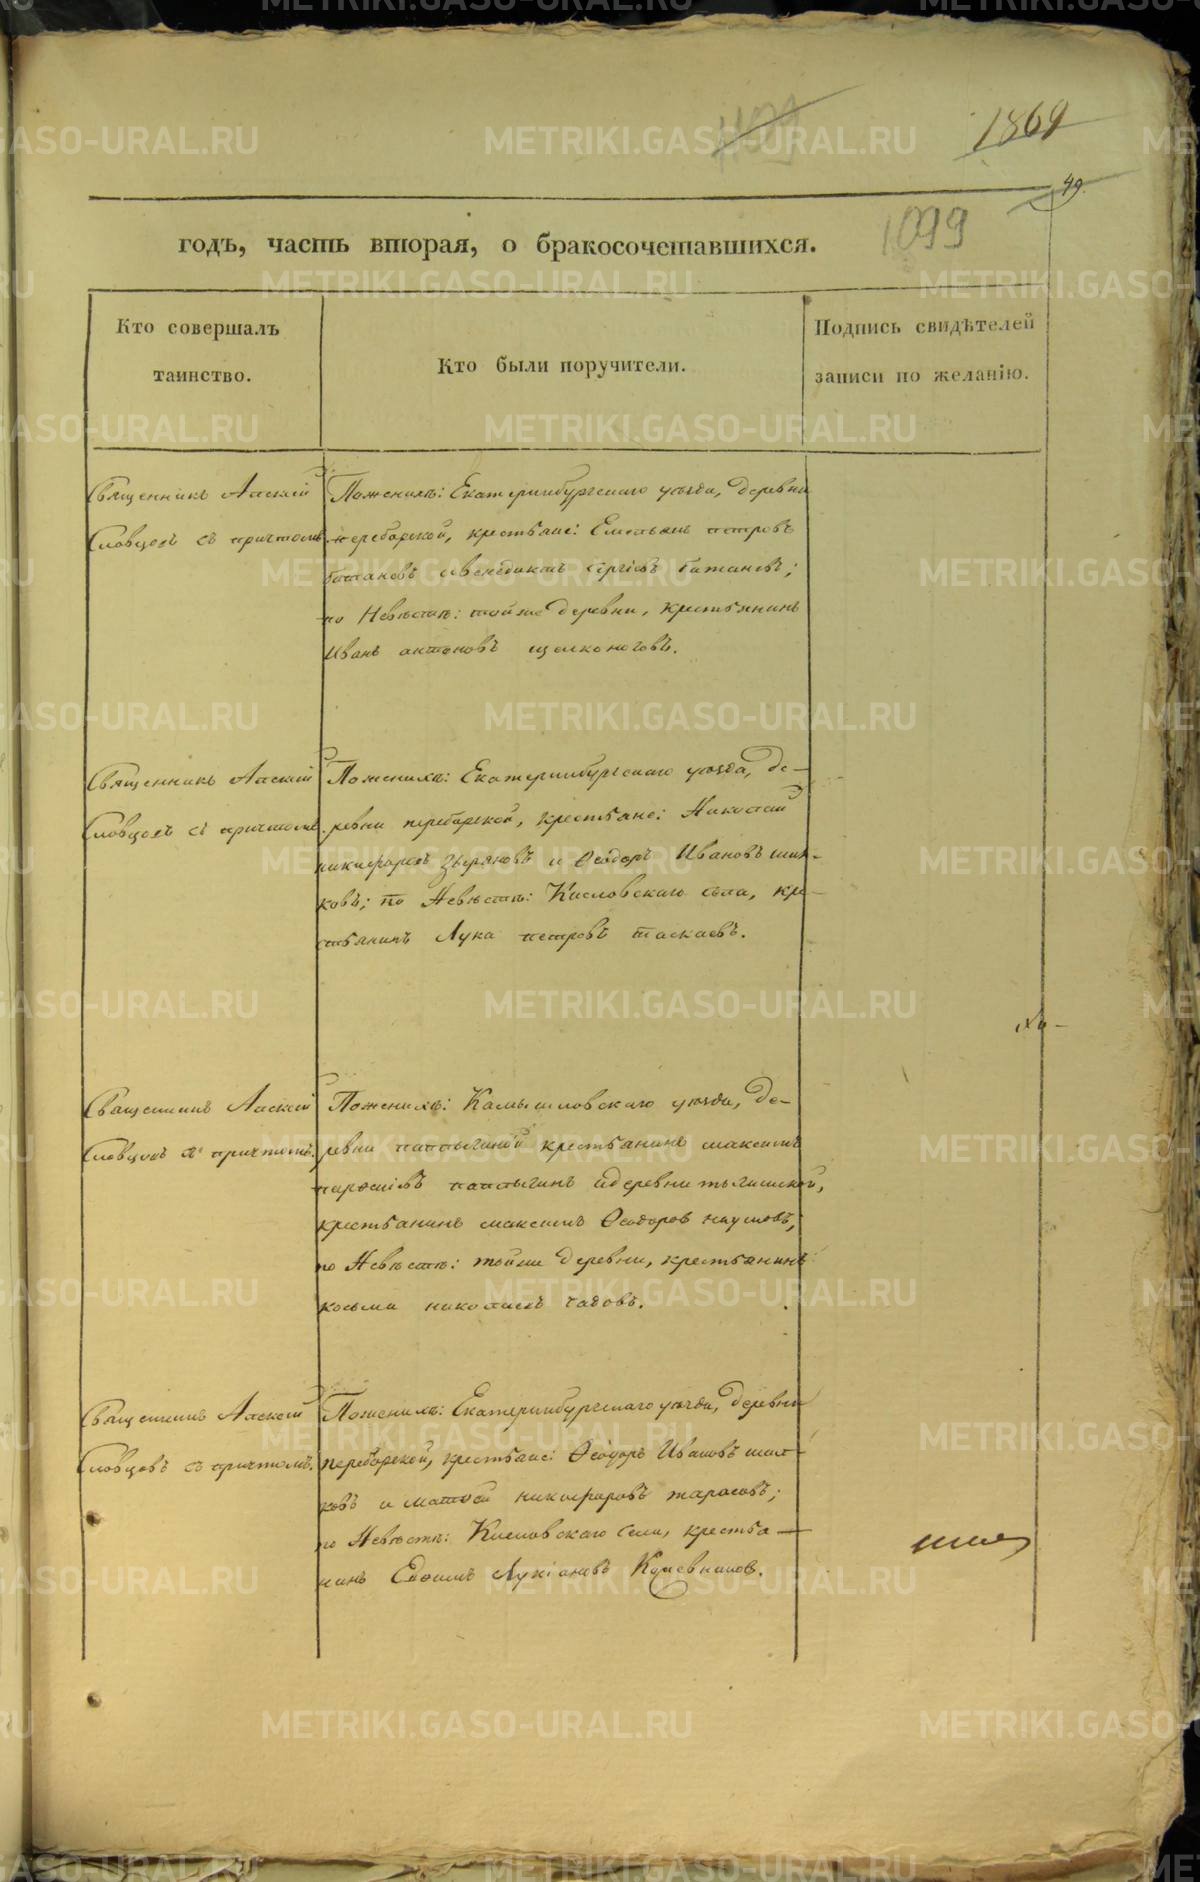 1869
49.
1099
годъ, часть вторая, о бракосочетавшихся.
Кто совершалъ таинство.
Кто были поручители.
Подпись свидѣтелей записи по желанію.
Священникъ Алексѣй
Словцовъ съ причтомъ.
По женихѣ: Екатеринбургскаго уѣзда, деревни
переборской, крестьяне: Емельянъ петровъ
батановъ и венедиктъ сергѣевъ батановъ;
по Невѣстѣ: тойже деревни, крестьянинъ
Иванъ антоновъ щелконоговъ.
Священникъ Алексѣй
Словцовъ съ причтомъ.
По женихѣ: Екатеринбургскаго уѣзда, де-
ревни переборской, крестьяне: Николай
никифоровъ Зыряновъ и Ѳеодоръ Ивановъ шил-
ковъ; по Невѣстѣ: Кисловскаго села, кре-
стьянинъ Лука петровъ таскаевъ.
Священникъ Алексѣй
Словцовъ съ причтомъ.
По женихѣ: Камышловскаго уѣзда, де-
ревни паппыгиной крестьянинъ максимъ
паппыгинъ и деревни
крестьянинъ максимъ Ѳеодоровъ наумовъ;
по Невѣстѣ: тойже деревни, крестьянинъ
косьма николаевъ чадовъ.
Священникъ Алексѣй
Словцовъ съ причтомъ.
По женихѣ: Екатеринбургскаго уѣзда, деревни
переборской, крестьяне: Ѳеодоръ Ивановъ шил-
ковъ и матѳей никифоровъ тарасовъ;
по Невѣстѣ: Кисловскаго села, крестья-
нинъ Евѳимъ Лукіановъ Кожевниковъ.
METRIKI.GASO-URAL.RU